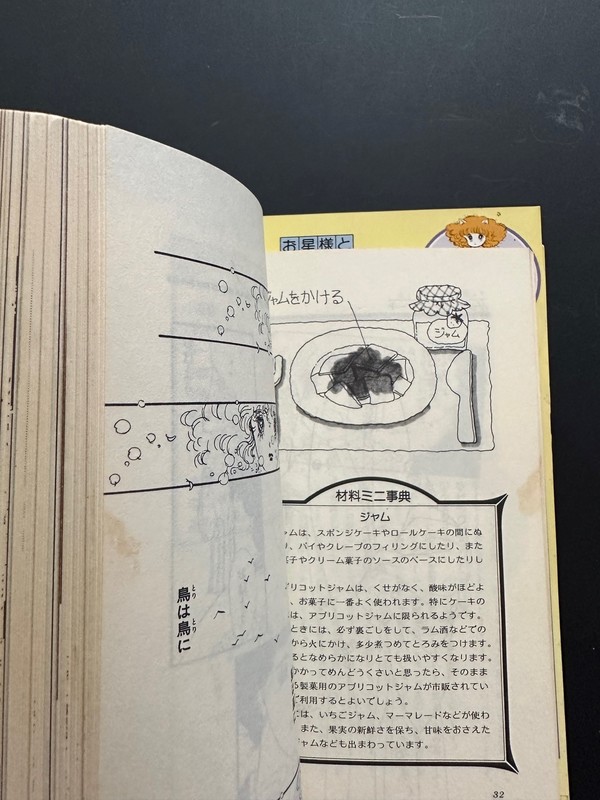 お星様と
ャムをかける
ジャム
材料ミニ事典
ジャム
ャムは、スポンジケーキやロールケーキの間にぬ
、パイやクレープのフィリングにしたり、また
子やクリーム菓子のソースのベースにしたりし
リコットジャムは、くせがなく、酸味がほどよ
、お菓子に一番よく使われます。特にケーキの
は、アプリコットジャムに限られるようです。
ときには、必ず裏ごしをして、ラム酒などでの
から火にかけ、多少煮つめてとろみをつけます。
るとなめらかになりとても扱いやすくなります。
かかってめんどうくさいと思ったら、そのまま
製菓用のアプリコットジャムが市販されてい
ご利用するとよいでしょう。
には、いちごジャム、マーマレードなどが使わ
また、果実の新鮮さを保ち、甘味をおさえた
ジャムなども出まわっています。
32
鳥は鳥に
とり
とり